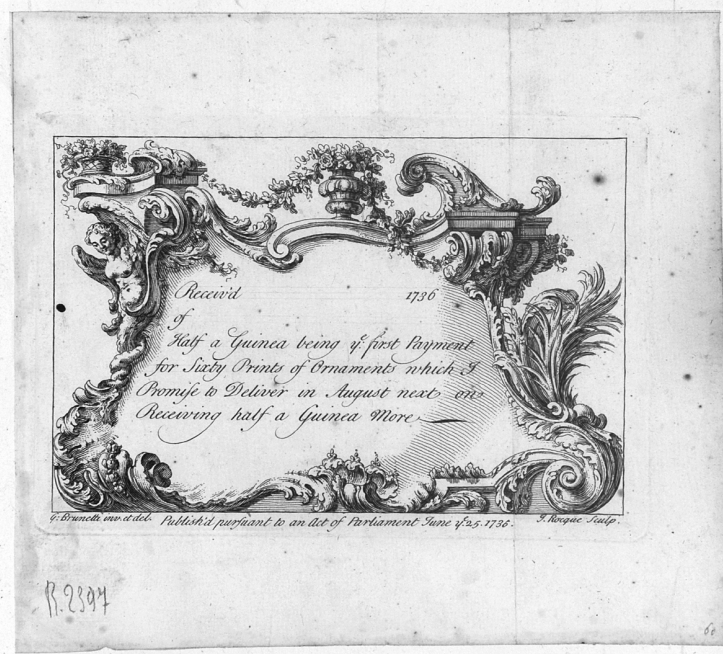 Receiv'd 1736
of
Half a Guinea being yᵉ. first Payment
for Sixty Prints of Ornaments which I
Promise to Deliver in August next on
Receiving half a Guinea More
G: Brunetti inv. et del. Publish'd pursuant to an Act of Parliament June yᵉ. 25. 1736. J. Rocque Sculp.
R. 2397
60